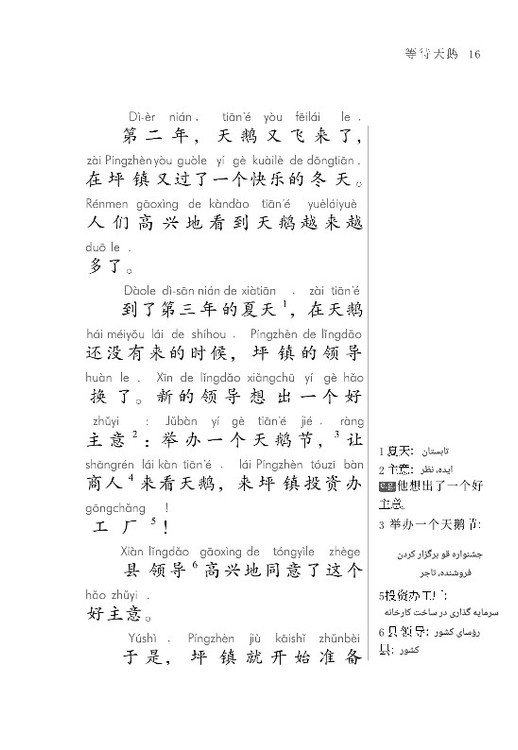 等待天鹅 16
Dì-èr nián, tiān'é yòu fēilái le.
第二年，天鹅又飞来了，
zài Píngzhèn yòu guòle yí gè kuàilè de dōngtiān.
在坪镇又过了一个快乐的冬天。
Rénmen gāoxìng de kàndào tiān'é yuèláiyuè
人们高兴地看到天鹅越来越
duō le.
多了。
Dàole dì-sān nián de xiàtiān, zài tiān'é
到了第三年的夏天1，在天鹅
hái méiyǒu lái de shíhou, Píngzhèn de lǐngdǎo
还没有来的时候，坪镇的领导
huàn le. Xīn de lǐngdǎo xiǎngchū yí gè hǎo
换了。新的领导想出一个好
zhǔyi: Jǔbàn yí gè tiān'é jié, ràng
主意2：举办一个天鹅节，3让
shāngrén lái kàn tiān'é, lái Píngzhèn tóuzī bàn
商人4来看天鹅，来坪镇投资办
gōngchǎng!
工厂5！
Xiàn lǐngdǎo gāoxìng de tóngyìle zhège
县领导6高兴地同意了这个
hǎo zhǔyi.
好主意。
Yúshì, Píngzhèn jiù kāishǐ zhǔnbèi
于是，坪镇就开始准备
1 夏天: تابستان
2 主意: ایده، نظر
e.g 他想出了一个好
主意。
3 举办一个天鹅节:
جشنواره قو برگزار کردن
فروشنده، تاجر
5投资办工厂:
سرمایه گذاری در ساخت کارخانه
6 县领导: رؤسای کشور
县: کشور